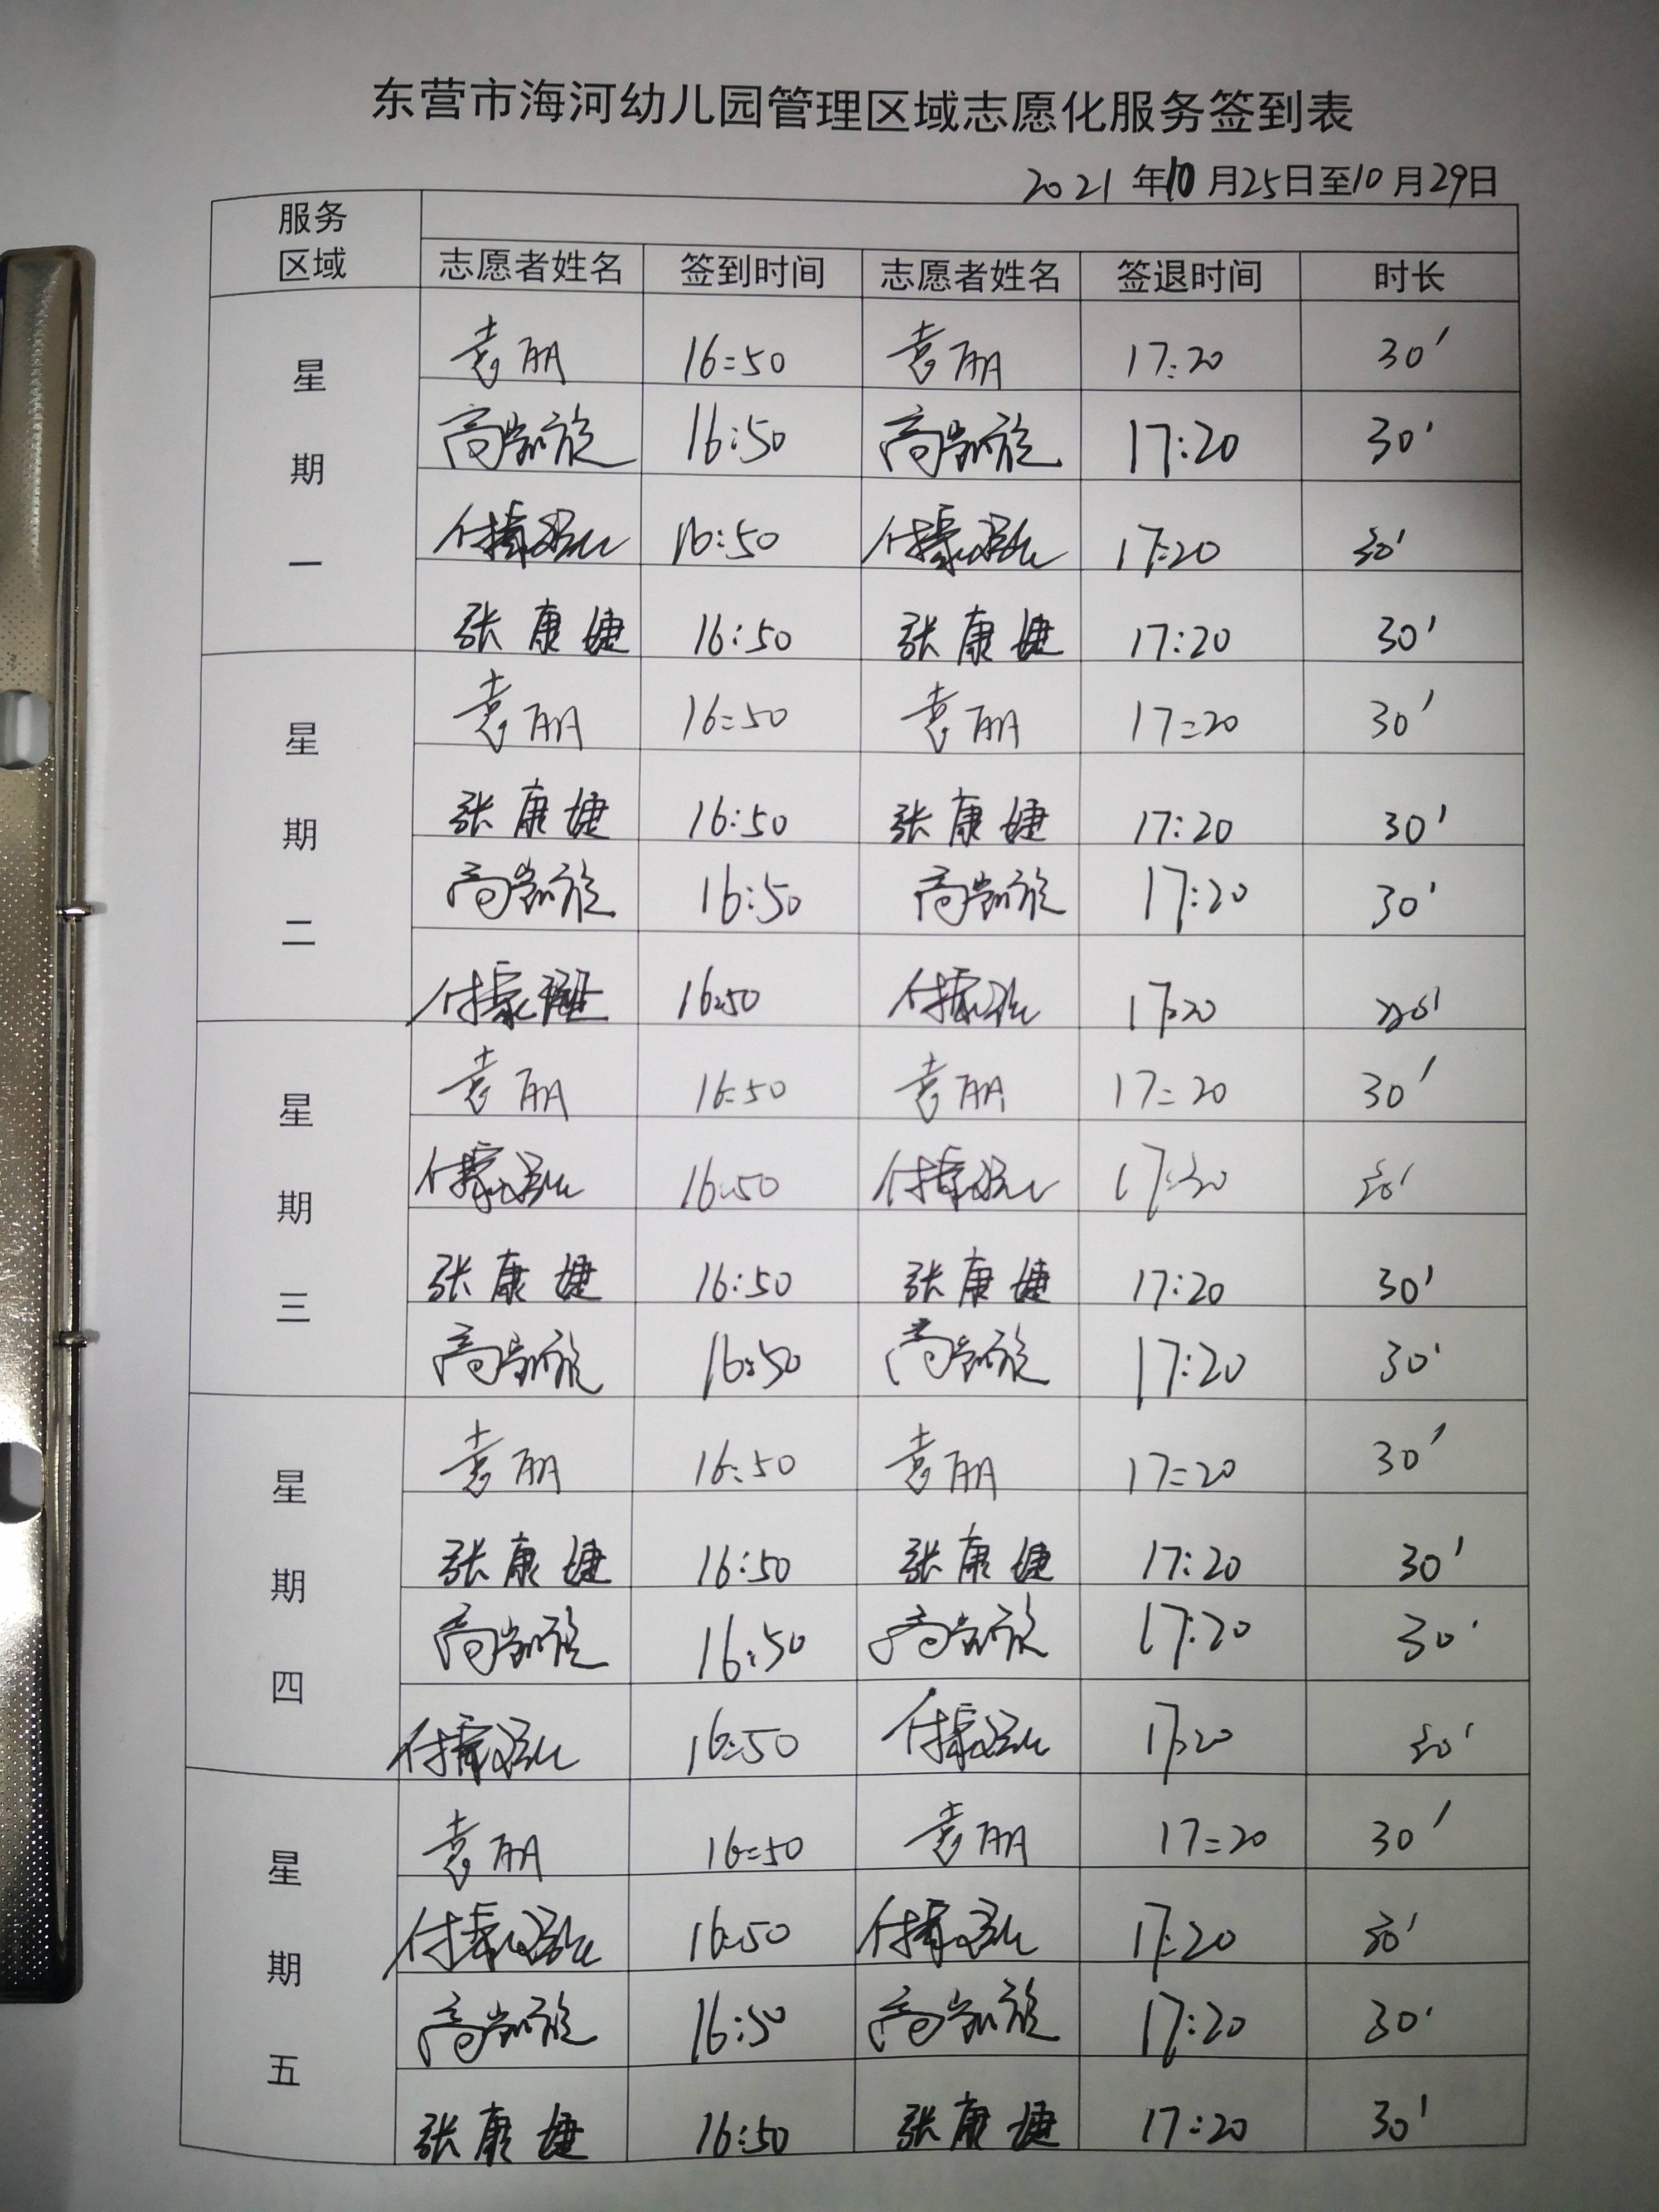 东营市海河幼儿园管理区域志愿化服务签到表
2021 年10 月25日至10 月29日
服务
区域
志愿者姓名 签到时间 志愿者姓名 签退时间 时长
星期一
袁丽 16:50 袁丽 17:20 30'
高凯旋 16:50 高凯旋 17:20 30'
16:50 17:20 30'
张康婕 16:50 张康婕 17:20 30'
星期二
袁丽 16:50 袁丽 17:20 30'
张康婕 16:50 张康婕 17:20 30'
高凯旋 16:50 高凯旋 17:20 30'
16:50 17:20 30'
星期三
袁丽 16:50 袁丽 17:20 30'
16:50 17:20 30'
张康婕 16:50 张康婕 17:20 30'
高凯旋 16:50 高凯旋 17:20 30'
星期四
袁丽 16:50 袁丽 17:20 30'
张康婕 16:50 张康婕 17:20 30'
高凯旋 16:50 高凯旋 17:20 30'
16:50 17:20 30'
星期五
袁丽 16:50 袁丽 17:20 30'
16:50 17:20 30'
高凯旋 16:50 高凯旋 17:20 30'
张康婕 16:50 张康婕 17:20 30'